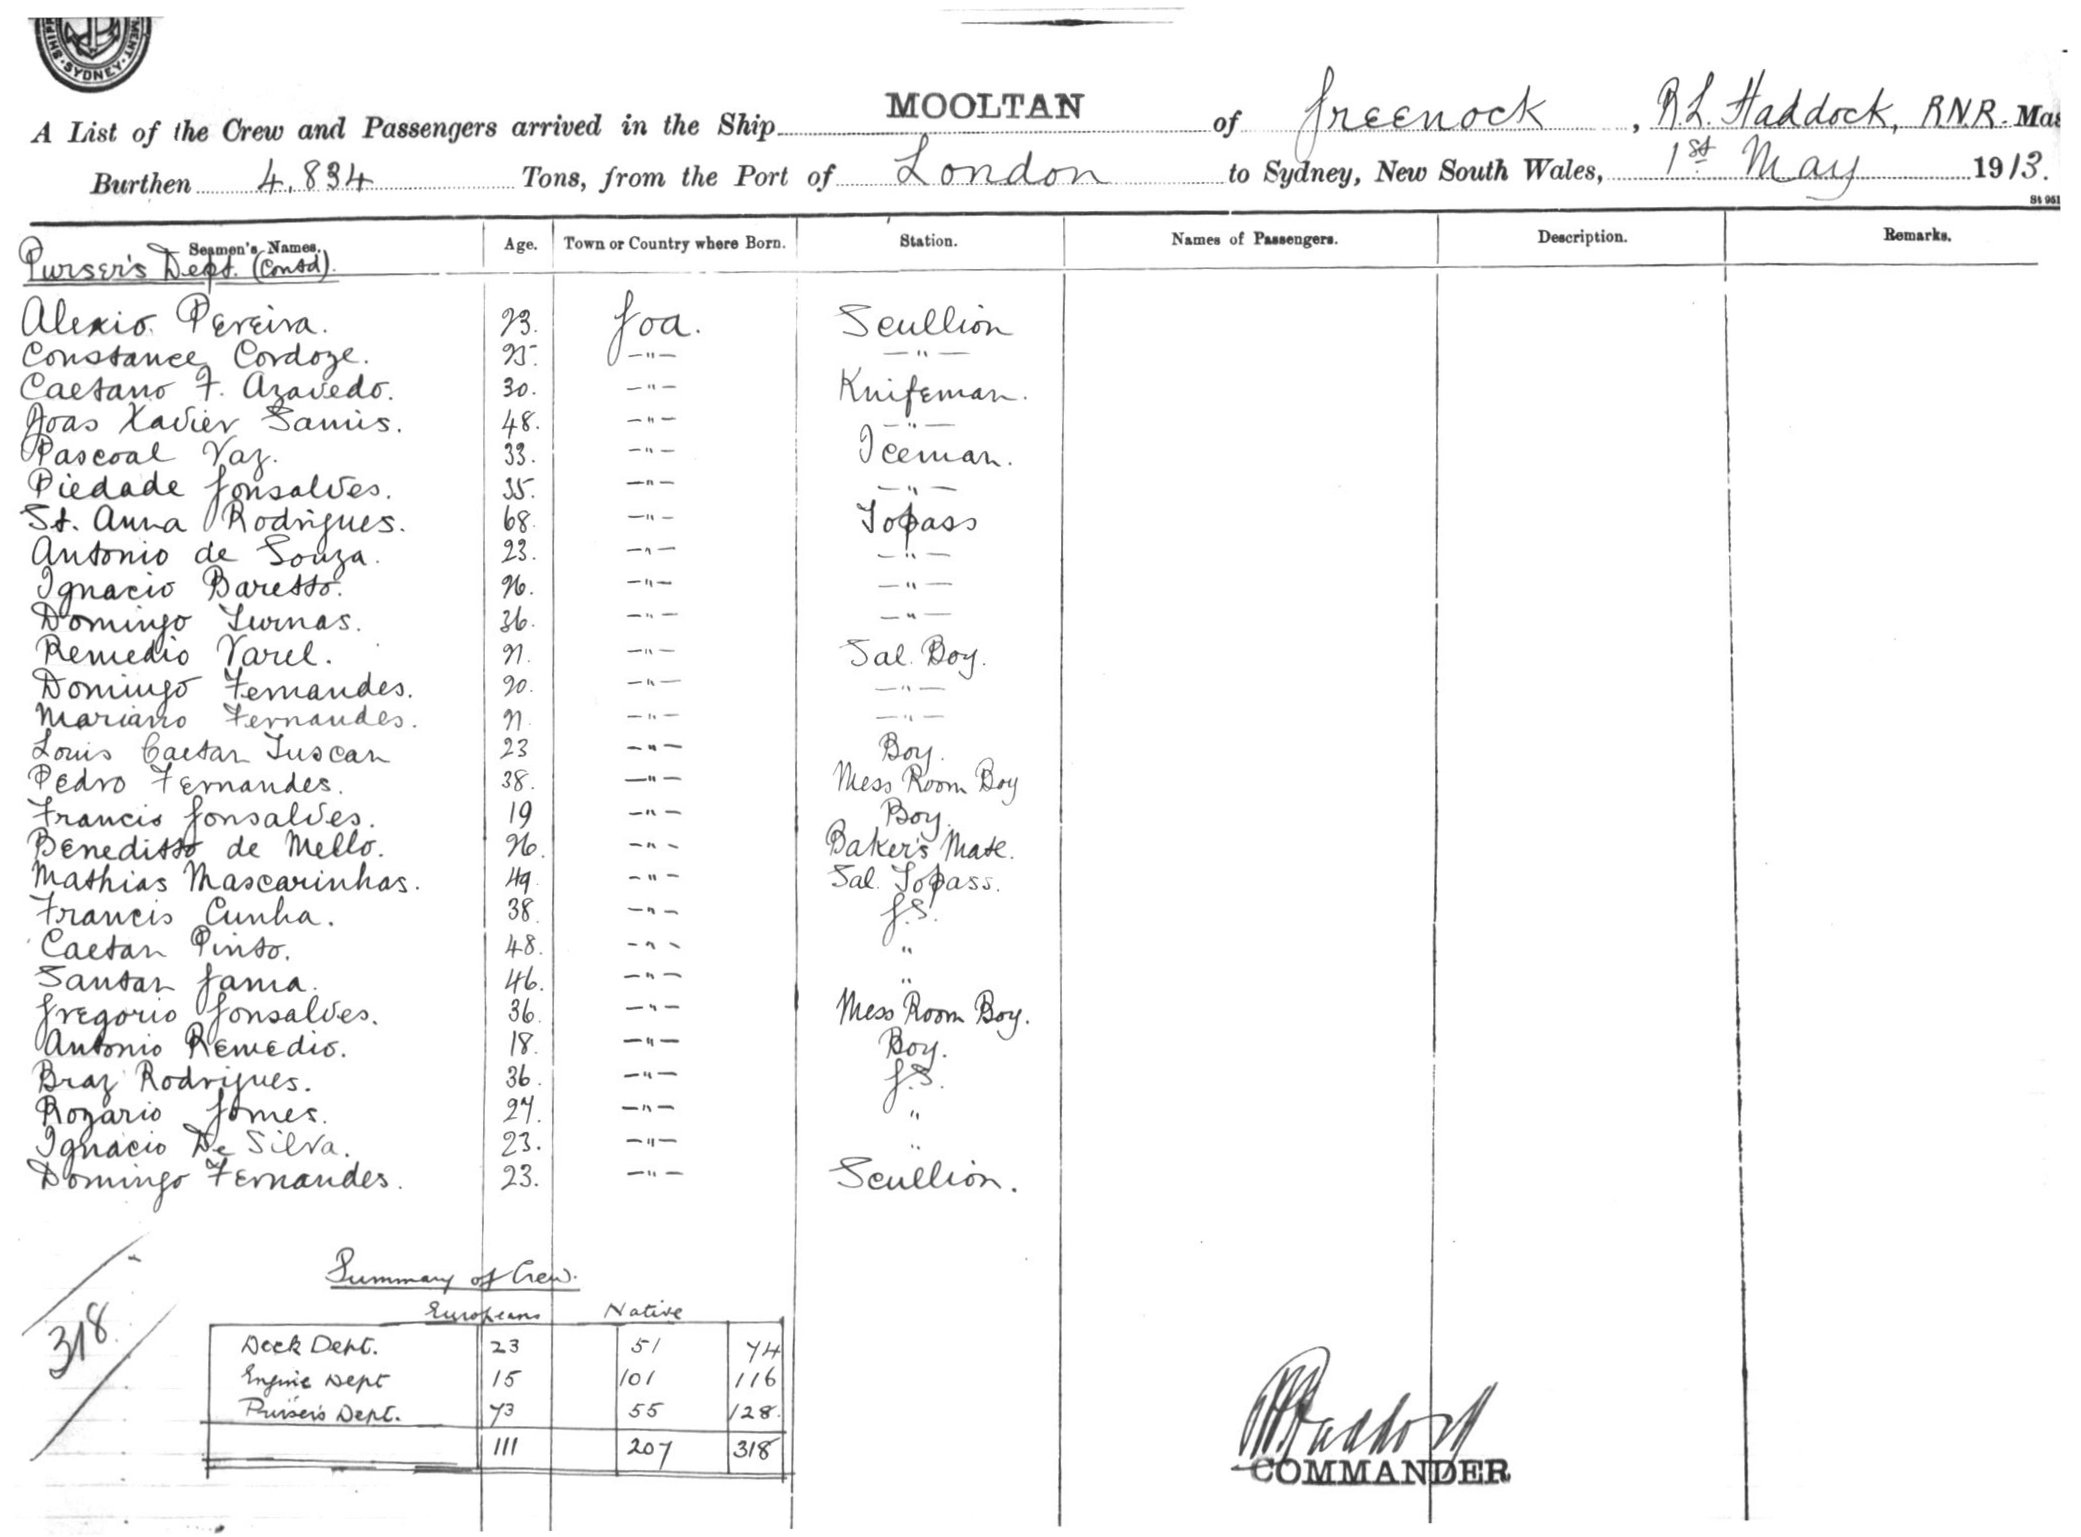 SHIP MENT
SYDNEY
A List of the Crew and Passengers arrived in the Ship MOOLTAN of Greenock, R.L. Haddock, RNR. Mas
Burthen 4,834 Tons, from the Port of London to Sydney, New South Wales, 1st May 1913.
St 951
Seamen's Names. Age. Town or Country where Born. Station. Names of Passengers. Description. Remarks.
Purser's Dept. (Contd).
Alexio Pereira. 23. Goa. Scullion
Constance Cordoze. 25. —"— —"—
Caetano F. Azavedo. 30. —"— Knifeman.
Joas Xavier Samis. 48. —"— —"—
Pascoal Vaz. 33. —"— Iceman.
Piedade Gonsalves. 35. —"— —"—
St. Anna Rodrigues. 68. —"— Topass
Antonio de Souza. 23. —"— —"—
Ignacio Baretto. 26. —"— —"—
Domingo Furnas. 36. —"— —"—
Remedio Varel. 21. —"— Sal. Boy.
Domingo Fernandes. 20. —"— —"—
Mariano Fernandes. 21. —"— —"—
Louis Caetan Tuscan 23 —"— Boy.
Pedro Fernandes. 38. —"— Mess Room Boy
Francis Gonsalves. 19 —"— Boy.
Beneditto de Mello. 26. —"— Baker's Mate.
Mathias Mascarinhas. 49. —"— Sal. Topass.
Francis Cunha. 38. —"— G.S.
Caetan Pinto. 48. —"— "
Santan Gama. 46. —"— "
Gregorio Gonsalves. 36. —"— Mess Room Boy.
Antonio Remedio. 18. —"— Boy.
Braz Rodrigues. 36. —"— G.S.
Rozario Gomes. 27. —"— "
Ignacio De Silva. 23. —"— "
Domingo Fernandes. 23. —"— Scullion.
Summary of Crew.
Europeans Native
318
Deck Dept. 23 51 74
Engine Dept 15 101 116
Purser's Dept. 73 55 128
111 207 318
RHaddock
COMMANDER